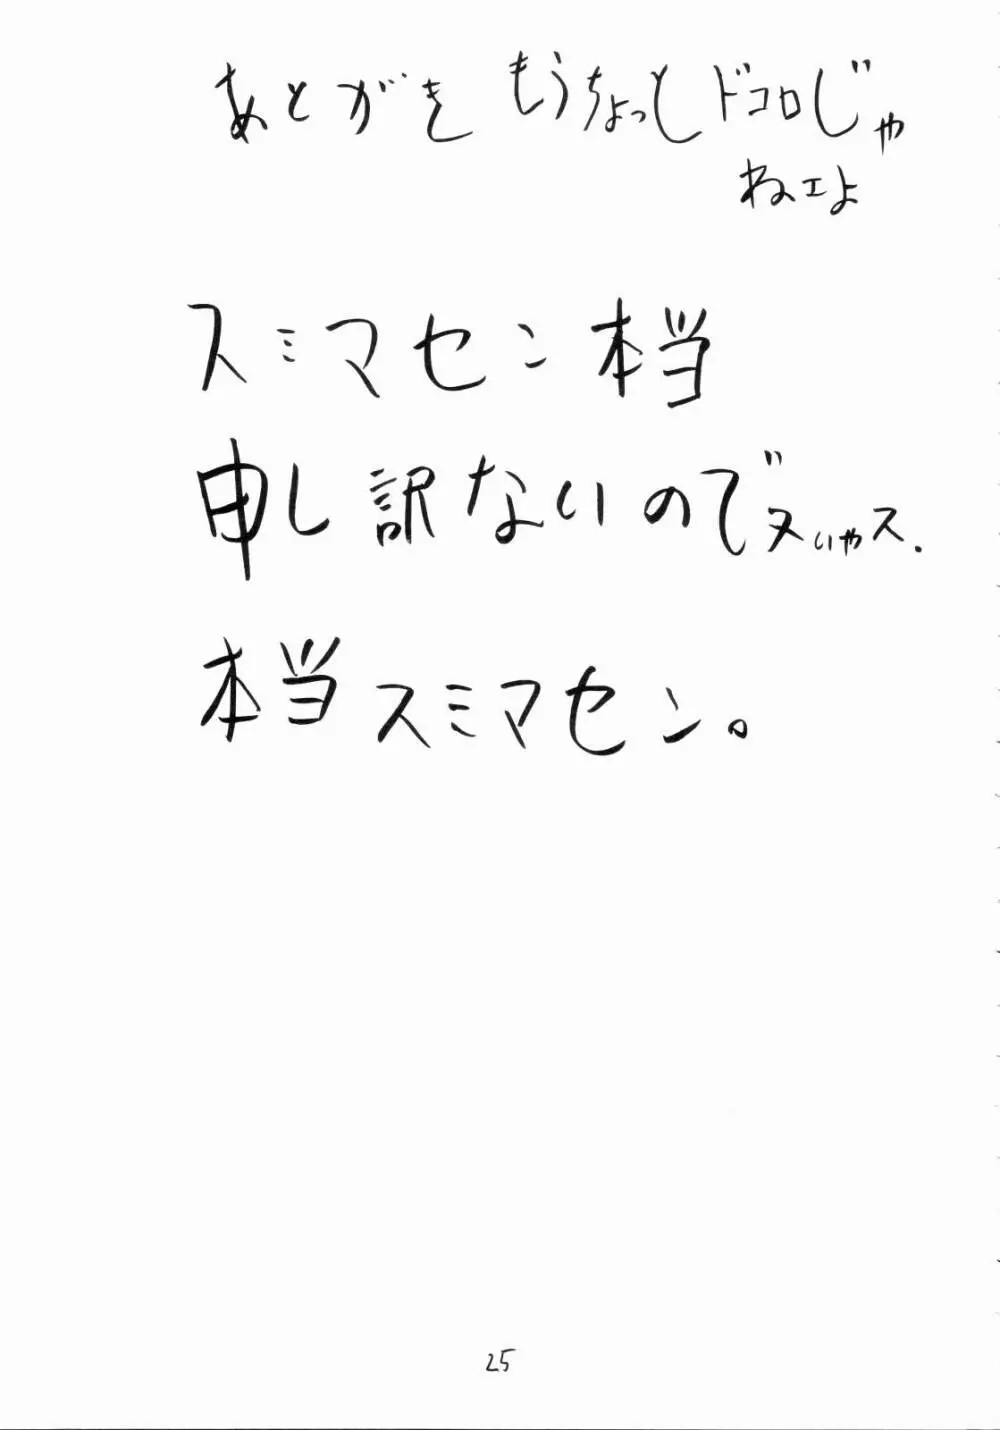 あとがき もうちょっとドコロじゃ
ねエよ
スミマセン本当
申し訳ないので
本当スミマセン。
25